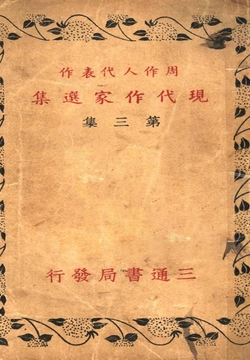 周作人代表作
現代作家選集
第三集
三通書局發行